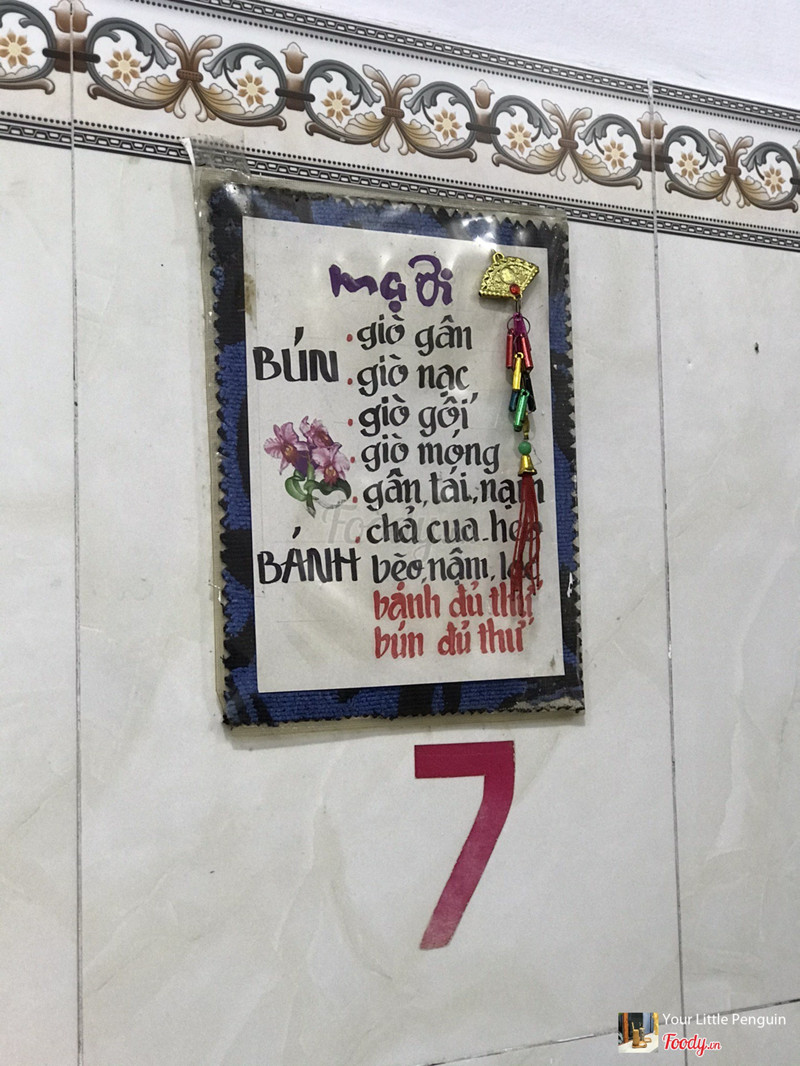 mạ Ơi
BÚN
giò gân
giò nạc
giò gối
giò móng
gân, tái, nạm
chả cua-heo
BÁNH bèo, nậm, lọc
bánh đủ thứ
bún đủ thứ
7
Foody
Your Little Penguin
Foody.vn